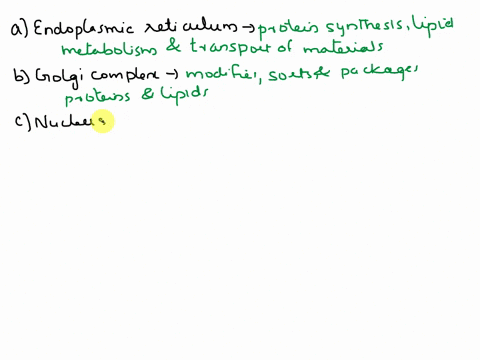 a) Endoplasmic reticulum → protein synthesis, lipid
metabolism & transport of materials
b) Golgi complex → modifies, sorts & packages
proteins & lipids
c) Nucleus